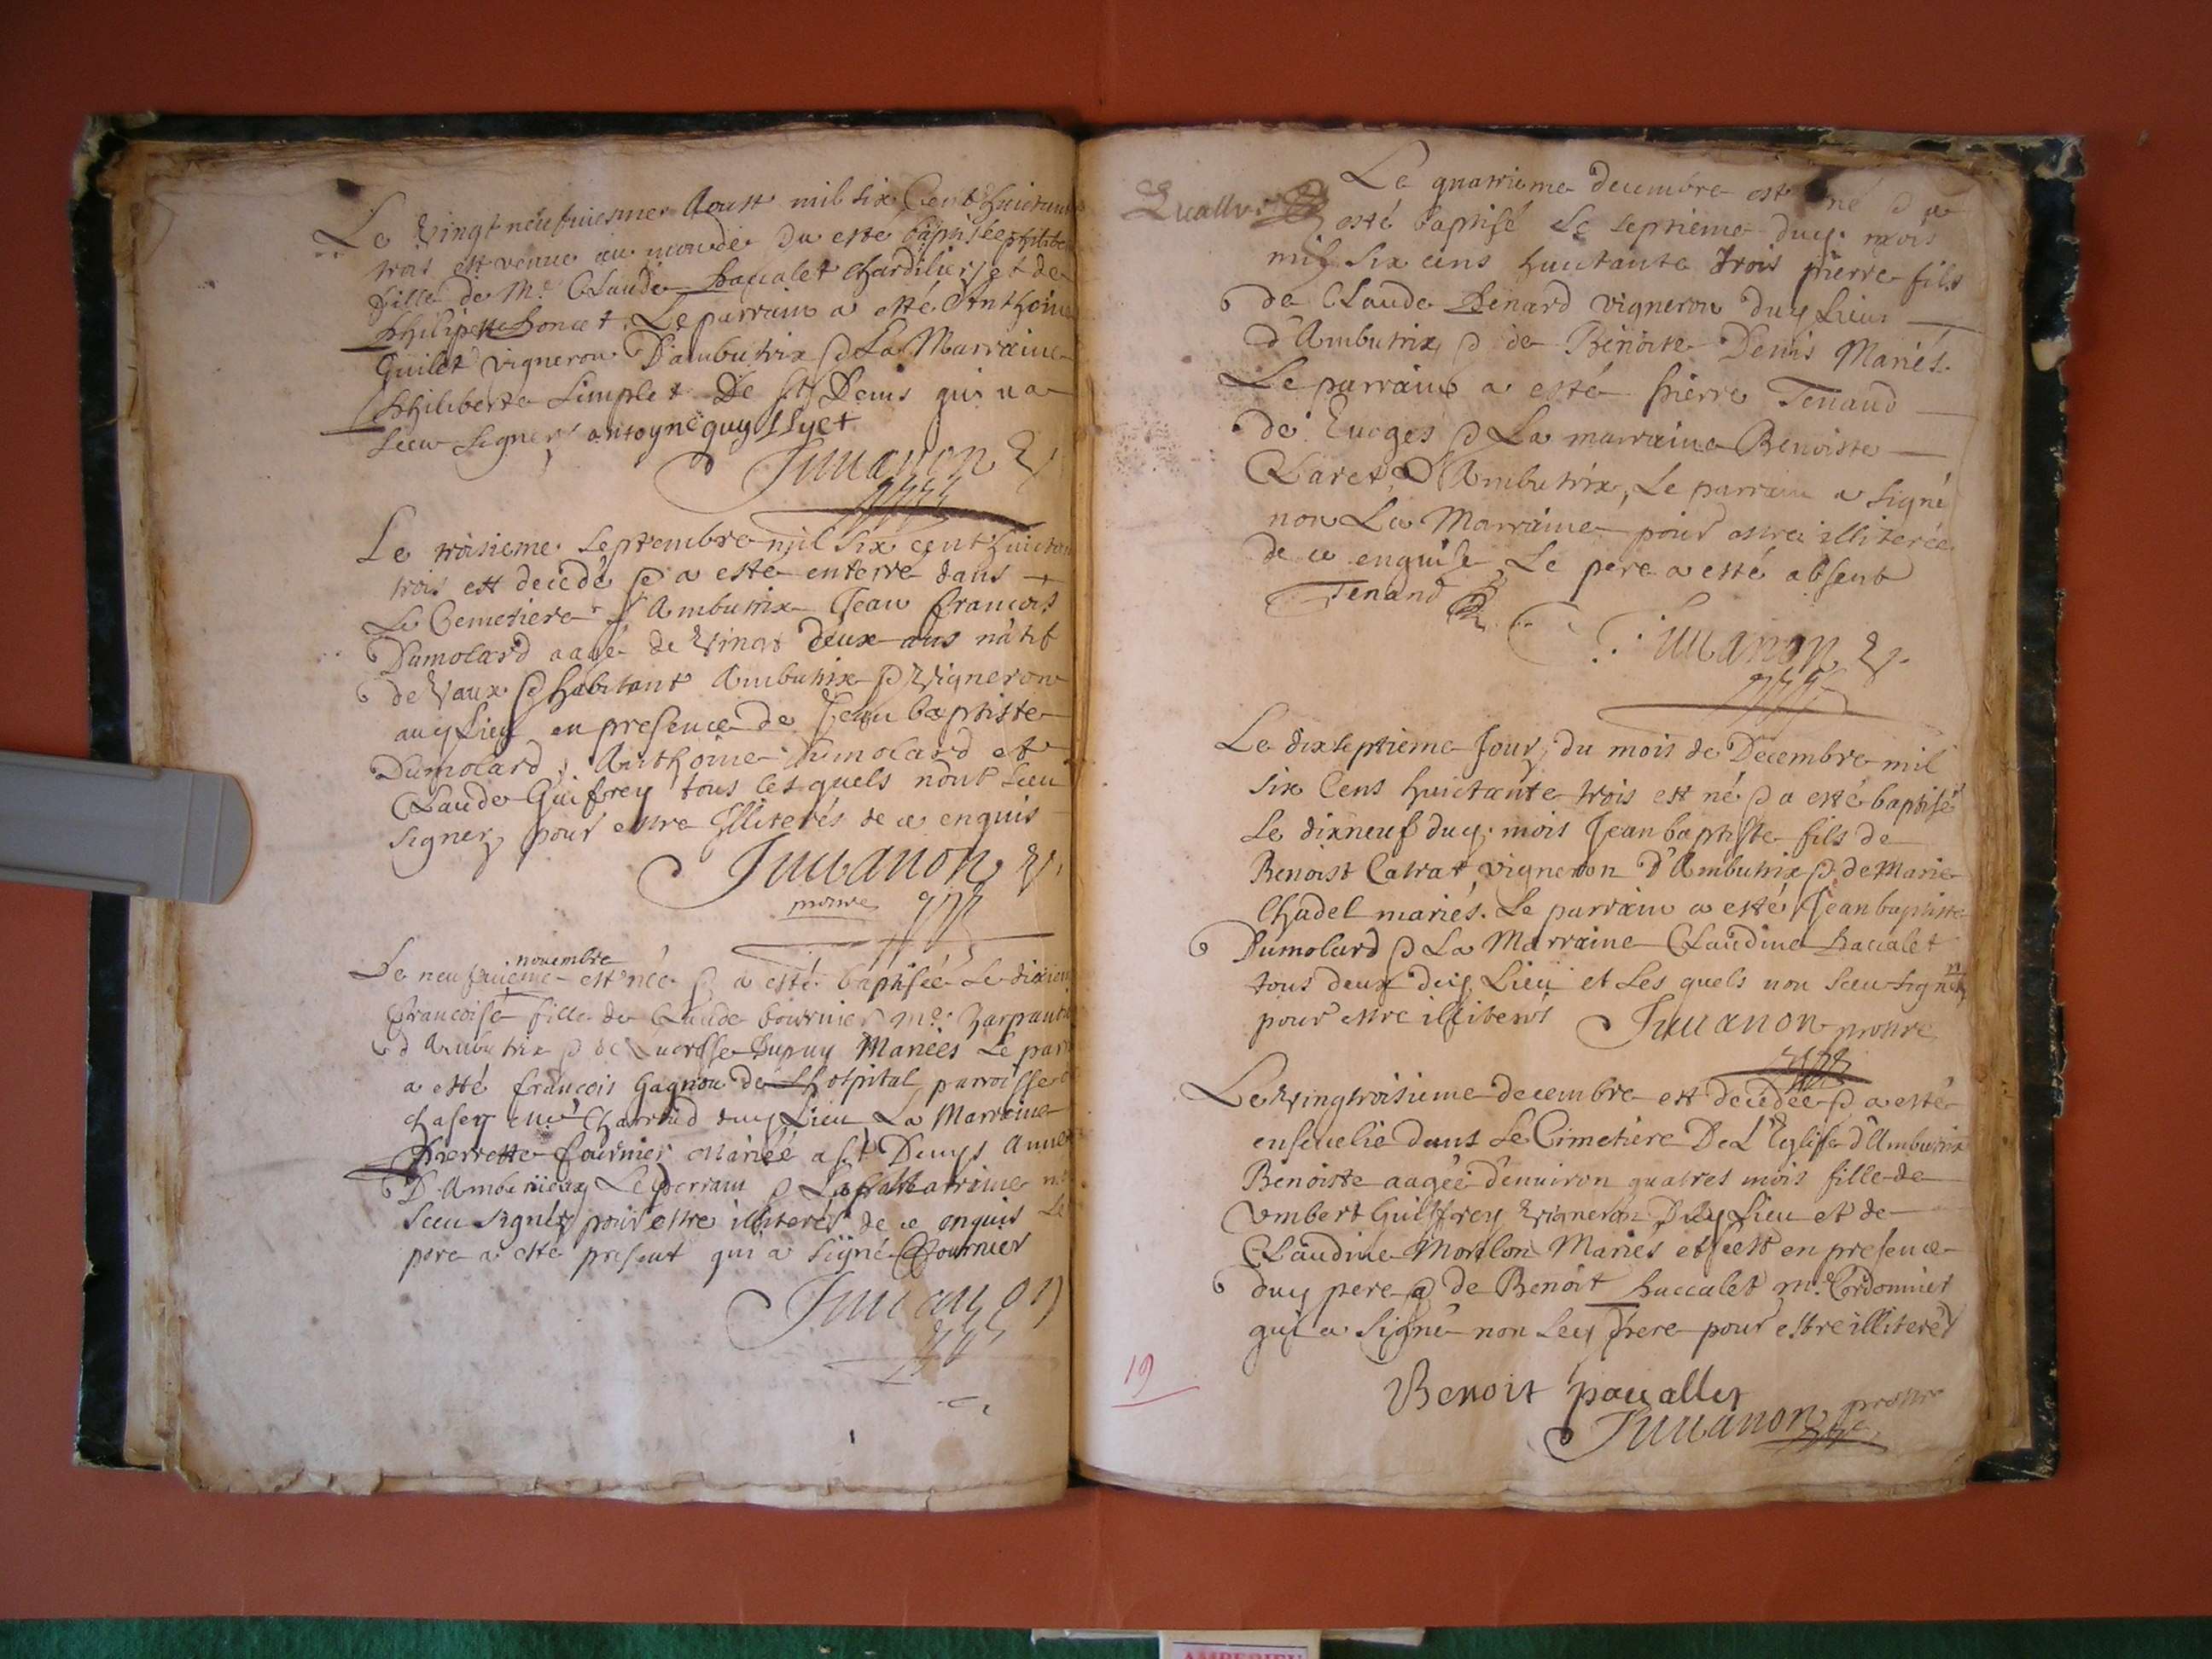 Le vingt neufuiesme Aoust mil six Cent huictante
trois est venue au monde & a esté baptisée philibe
fille de Me Claude paccalet chardilier et de
philipette poncet. Le parrain a esté Anthoine
Guilet vigneron D'ambutrix & La Marraine
philiberte Simplet De St Denis qui na
sceu signer antoyne guyllyet
Juuanon
Le troisieme septembre mil six cent huictan
trois est decedé & a esté enterré dans
Le Cemetiere d'Ambutrix Jean francois
Dumolard aagé de vingt deux ans natif
de Vaux & habitant Ambutrix & vigneron
audy Lieu en presence de Jean baptiste
Dumolard, Anthoine Dumolard et
Claude Guifrey tous lesquels nont sceu
signer pour estre Illiterés de ce enquis
Juuanon
prbtre
nouembre
Le neufuieme est née & a esté baptisée Le dixiem
francoise fille de Claude fournier me Charpanti
d'Ambutrix & de Lucresse Dupuy Mariées Le par
a esté francois Gagnon de Lhospital parroisse
duy Lieu La Marraine
pierrette fournier Mariée a St Denys
D'Amberieux Le perrain & La Marraine
sceu signer pour estre illiterés de ce enquis Le
pere a esté present qui a signé CFournier
Juuanon
Le quatrieme decembre est né & a
esté baptisé Le septieme duy mois
mil six cens huictante trois pierre fils
de Claude Benard vigneron duy Lieu
d'Ambutrix & de Benoite Denis Mariés.
Le parrain a esté pierre Tenand
de & La marraine Benoiste
Claret D'Ambutrix, Le parrain a signé
non La Marraine pour estre illiterée
de ce enquise Le pere a esté absent
Tenand
Juuanon
Le dixseptieme Jour du mois de Decembre mil
six Cens huictante trois est né & a esté baptisé
Le dixneuf duy mois Jean baptiste fils de
Benoist Catrat vigneron D'Ambutrix & de Marie
Chadel mariés. Le parrain a esté Jean baptiste
Dumolard & La Marraine Claudine paccalet
tous deux duy Lieu et Les quels non sceu signer
pour estre illiterés Juuanon prbtre
Le vingtroisieme decembre est decedée & a esté
enseuelie dans Le Cimetiere De L'Eglise d'Ambutrix
Benoiste aagée d'enuiron quatres mois fille de
Umbert Guiffrey vigneron Duy Lieu et de
Claudine Morlon Mariés et s'est en presence
duy pere & de Benoit paccalet me Cordonnier
qui a signé non Ley pere pour estre illiteré
Benoit paccallet
Juuanon prbtre
19